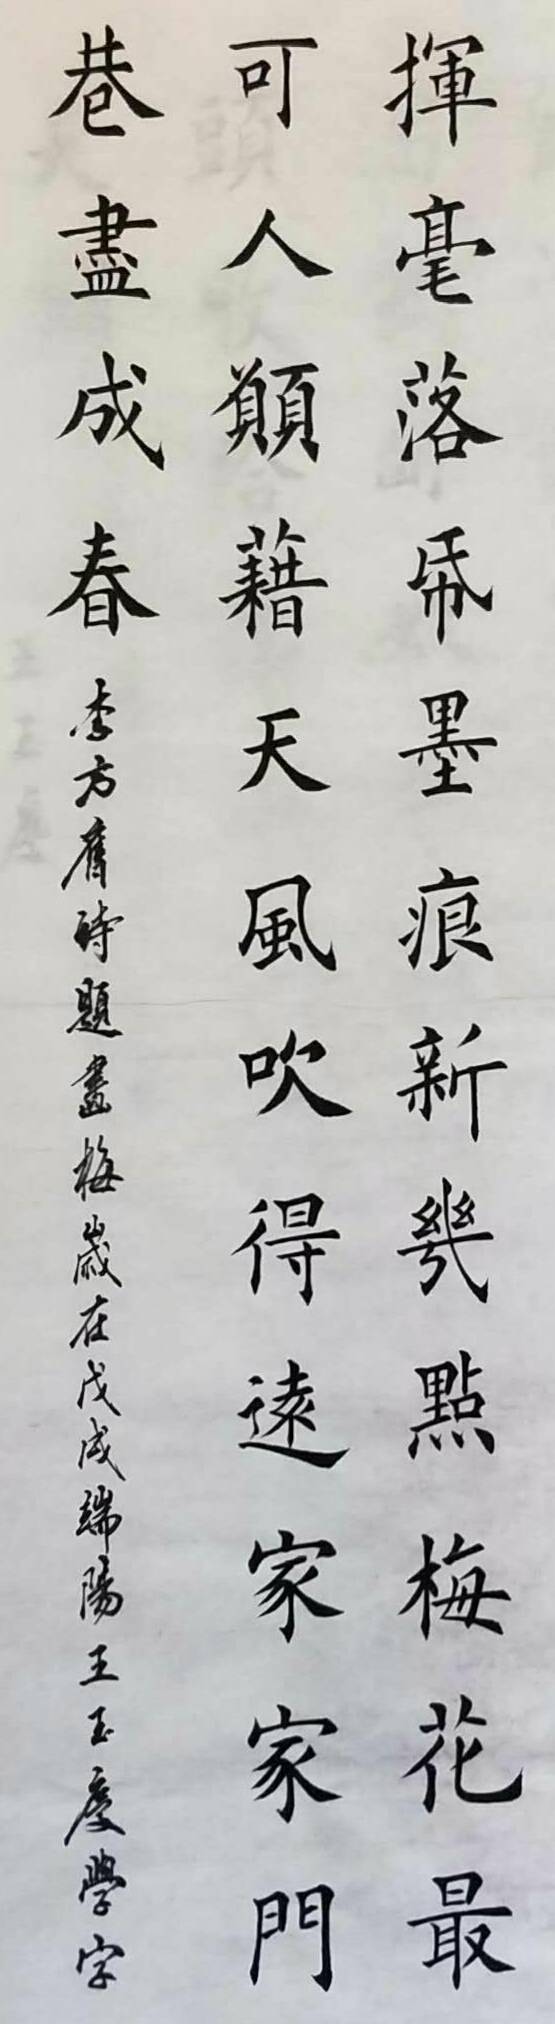 揮毫落帋墨痕新幾點梅花最
可人願藉天風吹得遠家家門
巷盡成春
李方膺詩題畫梅歲在戊戌端陽王玉慶學字